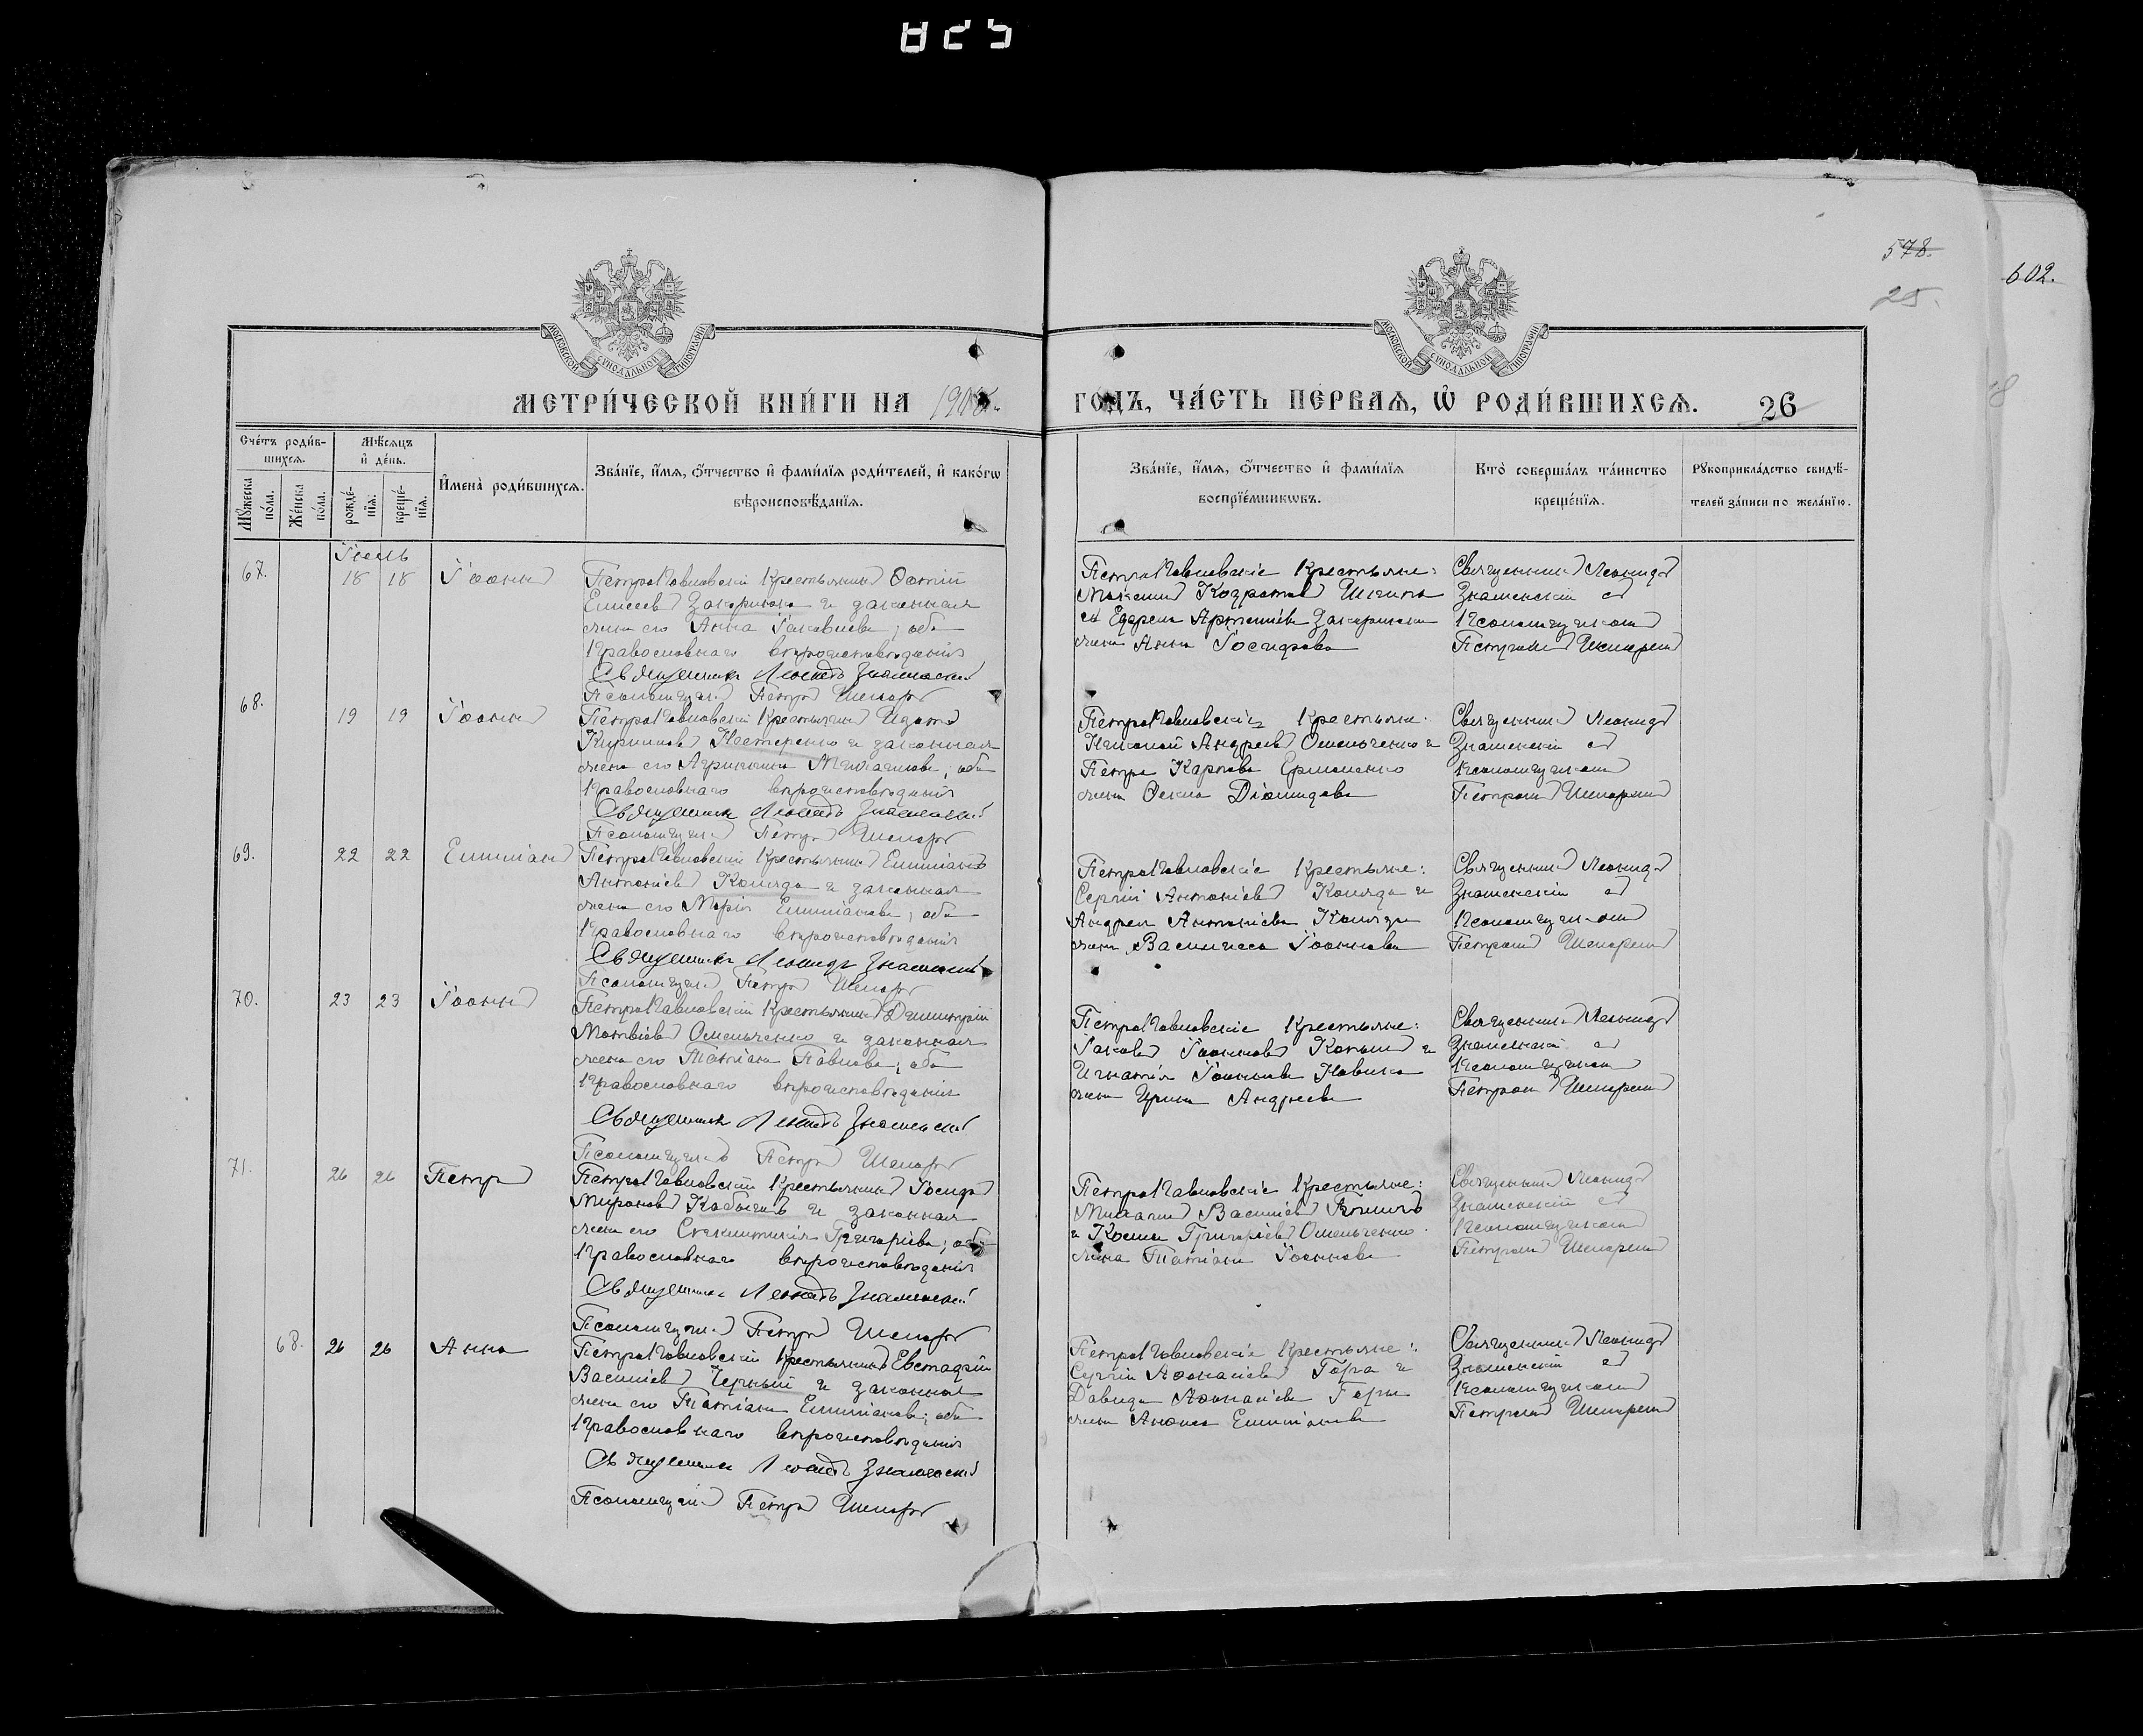 825
578.
25.
602.
МОСКОВСКОЙ СѴНОДАЛЬНОЙ ТИПОГРАФІИ
МОСКОВСКОЙ СѴНОДАЛЬНОЙ ТИПОГРАФІИ
МЕТРИ́ЧЕСКОЙ КНИ́ГИ НА
ГОДЪ, ЧА́СТЬ ПЕ́РВАѦ, Ѡ҆ РОДИ́ВШИХСѦ. 26
Сче́тъ роди́в-
шихсѧ.
Мѣ́сѧцъ
и҆ де́нь.
Мꙋ́жеска
по́ла.
Же́нска
по́ла.
рожде́-
нїѧ.
креще́-
нїѧ.
И҆мена̀ роди́вшихсѧ.
Зва́нїе, и҆́мѧ, ѻ҆́тчество и҆ фами́лїѧ роди́телей, и҆ како́гѡ
вѣроисповѣ́данїѧ.
Зва́нїе, и҆́мѧ, ѻ҆́тчество и҆ фами́лїѧ
воспрїе́мникѡвъ.
Кто̀ соверша́лъ та́инство
креще́нїѧ.
Рꙋкоприкла́дство свидѣ́-
телей за́писи по жела́нїю.
67.
18 18 Іоаннъ
ПетроПавловскій Крестьянинъ Фотій
Елисеевъ и законная
жена его Анна Іаковлева; оба
Православнаго вѣроисповѣданія
Священникъ Леонидъ Знаменскій
Псаломщикъ Петръ
ПетроПавловскіе Крестьяне:
и
жена Анна Іосифова
Священникъ Леонидъ
Знаменскій съ
Псаломщикомъ
Петромъ
68.
19 19 Іоаннъ
ПетроПавловскій Крестьянинъ
Кирилловъ Нестеренко и законная
жена его оба
Православнаго вѣроисповѣданія
Священникъ Леонидъ Знаменскій
Псаломщикъ Петръ
ПетроПавловскіе Крестьяне:
Николай Андреевъ Омельченко и
Петра Карпова Ермоленко
жена Діомидова
Священникъ Леонидъ
Знаменскій съ
Псаломщикомъ
Петромъ
69.
22 22 Емиліанъ
ПетроПавловскій Крестьянинъ Емиліанъ
Антоніевъ Коляда и законная
жена его Марія Емиліанова; оба
Православнаго вѣроисповѣданія
Священникъ Леонидъ Знаменскій
Псаломщикъ Петръ
ПетроПавловскіе Крестьяне:
Сергій Антоніевъ Коляда и
Андрея Антоніева Коляды
жена Василиса Іоаннова
Священникъ Леонидъ
Знаменскій съ
Псаломщикомъ
Петромъ
70.
23 23 Іоаннъ
ПетроПавловскій Крестьянинъ Димитрій
Матвіевъ Омельченко и законная
жена его Татіана Павлова; оба
Православнаго вѣроисповѣданія
Священникъ Леонидъ Знаменскій
Псаломщикъ Петръ
ПетроПавловскіе Крестьяне:
Іаковъ Іоанновъ и
Игнатія Іоаннова Новика
жена Ирина Андреева
Священникъ Леонидъ
Знаменскій съ
Псаломщикомъ
Петромъ
71.
26 26 Петръ
ПетроПавловскій Крестьянинъ Іосифъ
Мироновъ и законная
жена его Григоріева; оба
Православнаго вѣроисповѣданія
Священникъ Леонидъ Знаменскій
Псаломщикъ Петръ
ПетроПавловскіе Крестьяне:
Михаилъ Василіевъ
и Космы Григоріева Омельченко
жена Татіана Іоаннова
Священникъ Леонидъ
Знаменскій съ
Псаломщикомъ
Петромъ
68. 26 26 Анна
ПетроПавловскій Крестьянинъ Евстафій
Василіевъ Черный и законная
жена его Татіана Емиліанова; оба
Православнаго вѣроисповѣданія
Священникъ Леонидъ Знаменскій
Псаломщикъ Петръ
ПетроПавловскіе Крестьяне:
Сергій Афанасіевъ Гора и
Давида Афанасіева Горы
жена Емиліанова
Священникъ Леонидъ
Знаменскій съ
Псаломщикомъ
Петромъ